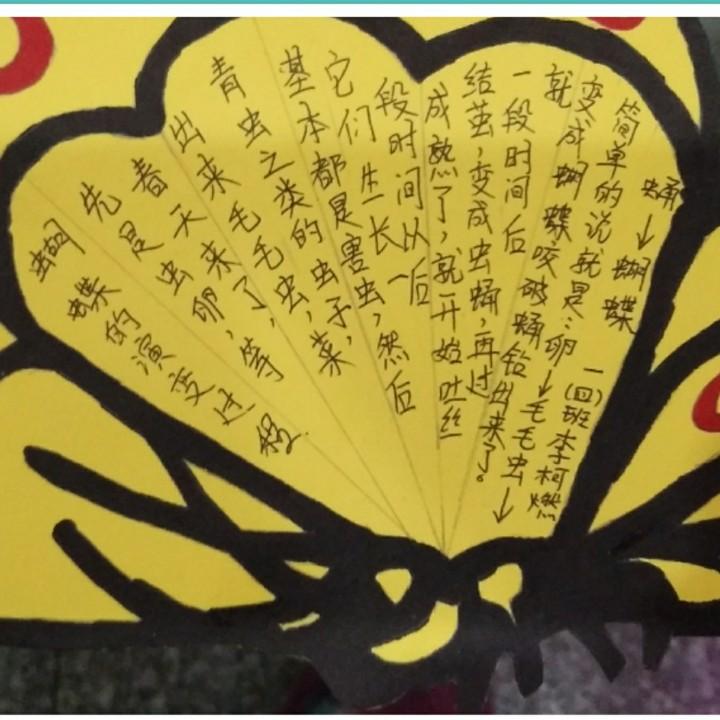 蝴蝶的演变过程
先是虫卵,等
春天来了,
出来毛毛虫,菜
青虫之类的虫子,
基本都是害虫,然后
它们生长一
段时间以后
成熟了,就开始吐丝
结茧,变成虫蛹,再过
一段时间后
就变成蝴蝶咬破蛹钻出来了。
简单的说就是:卵↓毛毛虫↓
蛹↓蝴蝶
一(四)班 李柯燃